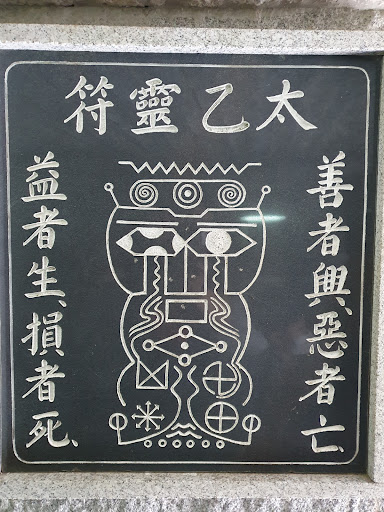 太乙靈符
善者興、惡者亡、
益者生、損者死、